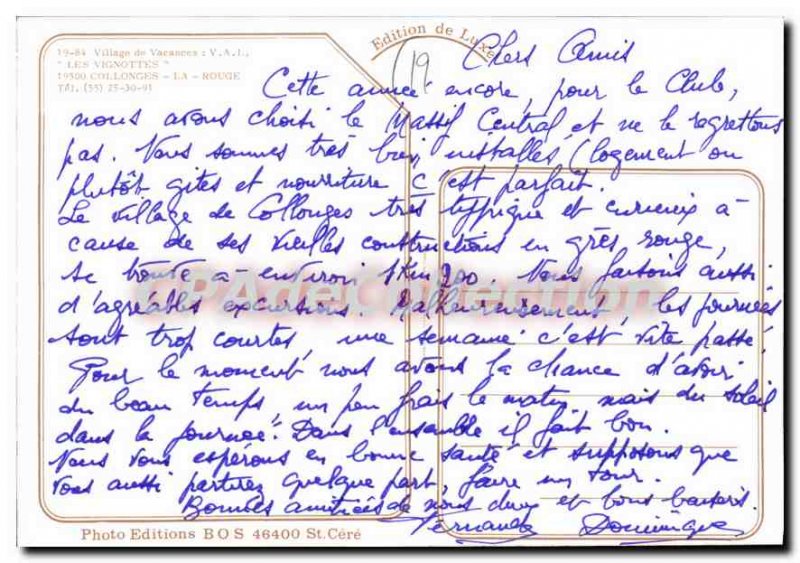 Edition de Luxe
19-84 Village de Vacances : V.A.L.
" LES VIGNOTTES "
19500 COLLONGES - LA - ROUGE
Tél. (55) 25-30-91
(19
Chers Amis
Cette année encore, pour le Club,
nous avons choisi le Massif Central et ne le regrettons
pas. Nous sommes très bien installés (logement ou
plutôt gites et nourriture c'est parfait.
Le village de Collonges très typique et curieux à
cause de ses vieilles constructions en grès rouge,
se trouve à environ 1Km200. Nous faisons aussi
d'agréables excursions. Malheureusement, les journées
sont trop courtes, une semaine c'est vite passé.
Pour le moment nous avons la chance d'avoir
du beau temps, un peu frais le matin mais du soleil
dans la journée. Dans l'ensemble il fait bon.
Nous vous espérons en bonne santé et supposons que
vous aussi partirez quelque part, faire un tour.
Bonnes amitiés de nous deux et bons baisers.
Fernande Dominique
CPAdeCollection
Photo Editions BOS 46400 St.Céré